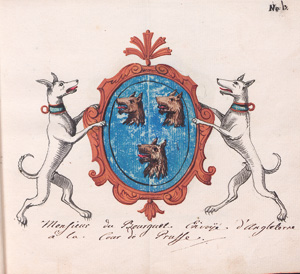 No. b.
Monsieur du Bourguet. Envoyé d'Angleterre
à la Cour de Prusse.